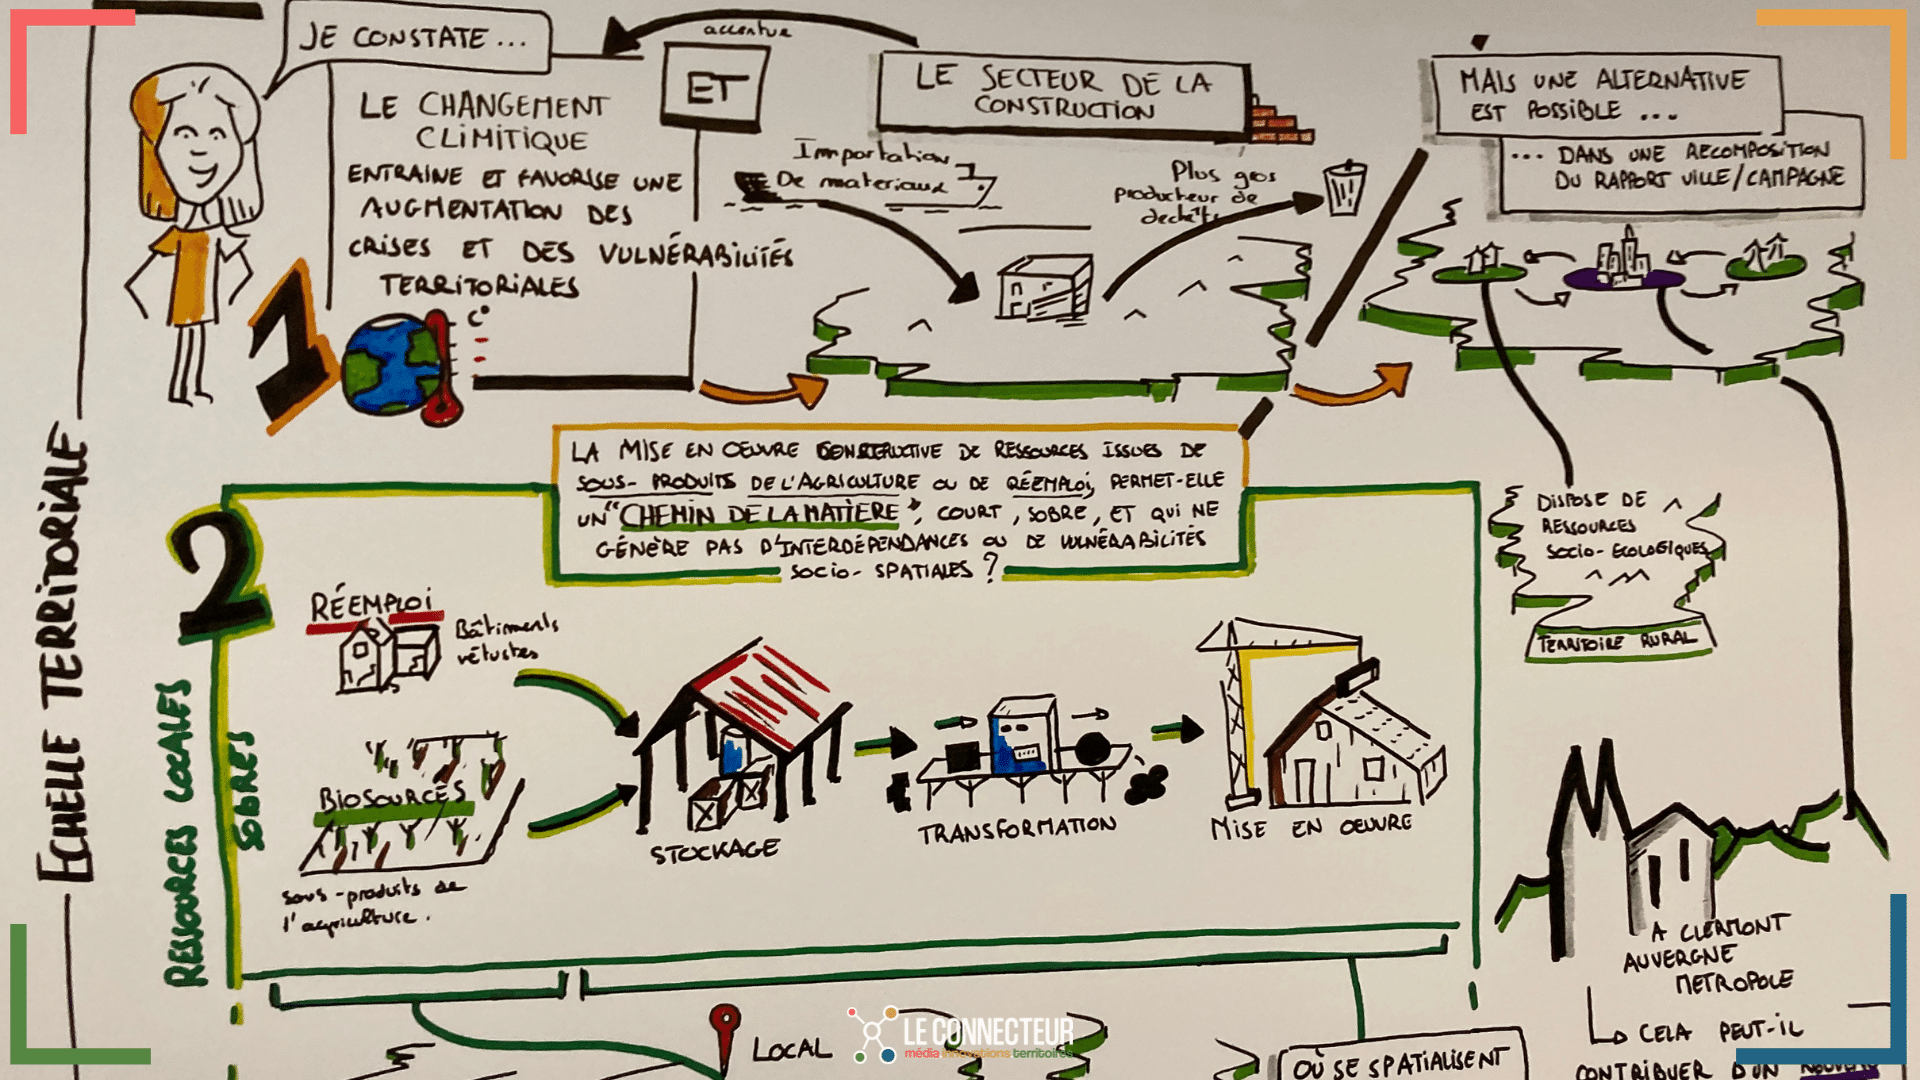 ECHELLE TERRITORIALE
JE CONSTATE ...
LE CHANGEMENT
CLIMITIQUE
ENTRAINE ET FAVORISE UNE
AUGMENTATION DES
CRISES ET DES VULNÉRABILITÉS
TERRITORIALES
1
C°
ET
accentue
LE SECTEUR DE LA
CONSTRUCTION
Importation
De materiaux
Plus gros
producteur de
dechets
MAIS UNE ALTERNATIVE
EST POSSIBLE ...
... DANS UNE RECOMPOSITION
DU RAPPORT VILLE/CAMPAGNE
LA MISE EN OEUVRE CONSTRUCTIVE DE RESSOURCES ISSUES DE
SOUS-PRODUITS DE L'AGRICULTURE OU DE RÉEMPLOI, PERMET-ELLE
UN "CHEMIN DE LA MATIÈRE", COURT, SOBRE, ET QUI NE
GÉNÈRE PAS D'INTERDÉPENDANCES OU DE VULNÉRABILITÉS
SOCIO-SPATIALES ?
DISPOSE DE
RESSOURCES
SOCIO-ECOLOGIQUES
TERRITOIRE RURAL
2
RESSOURCES LOCALES
SOBRES
RÉEMPLOI
Bâtiments
vétustes
BIOSOURCÉS
sous-produits de
l'agriculture.
STOCKAGE
TRANSFORMATION
MISE EN OEUVRE
A CLERMONT
AUVERGNE
METROPOLE
CELA PEUT-IL
CONTRIBUER D'UN NOUVEAU
LOCAL
LE CONNECTEUR
média innovations territoires
OÙ SE SPATIALISENT